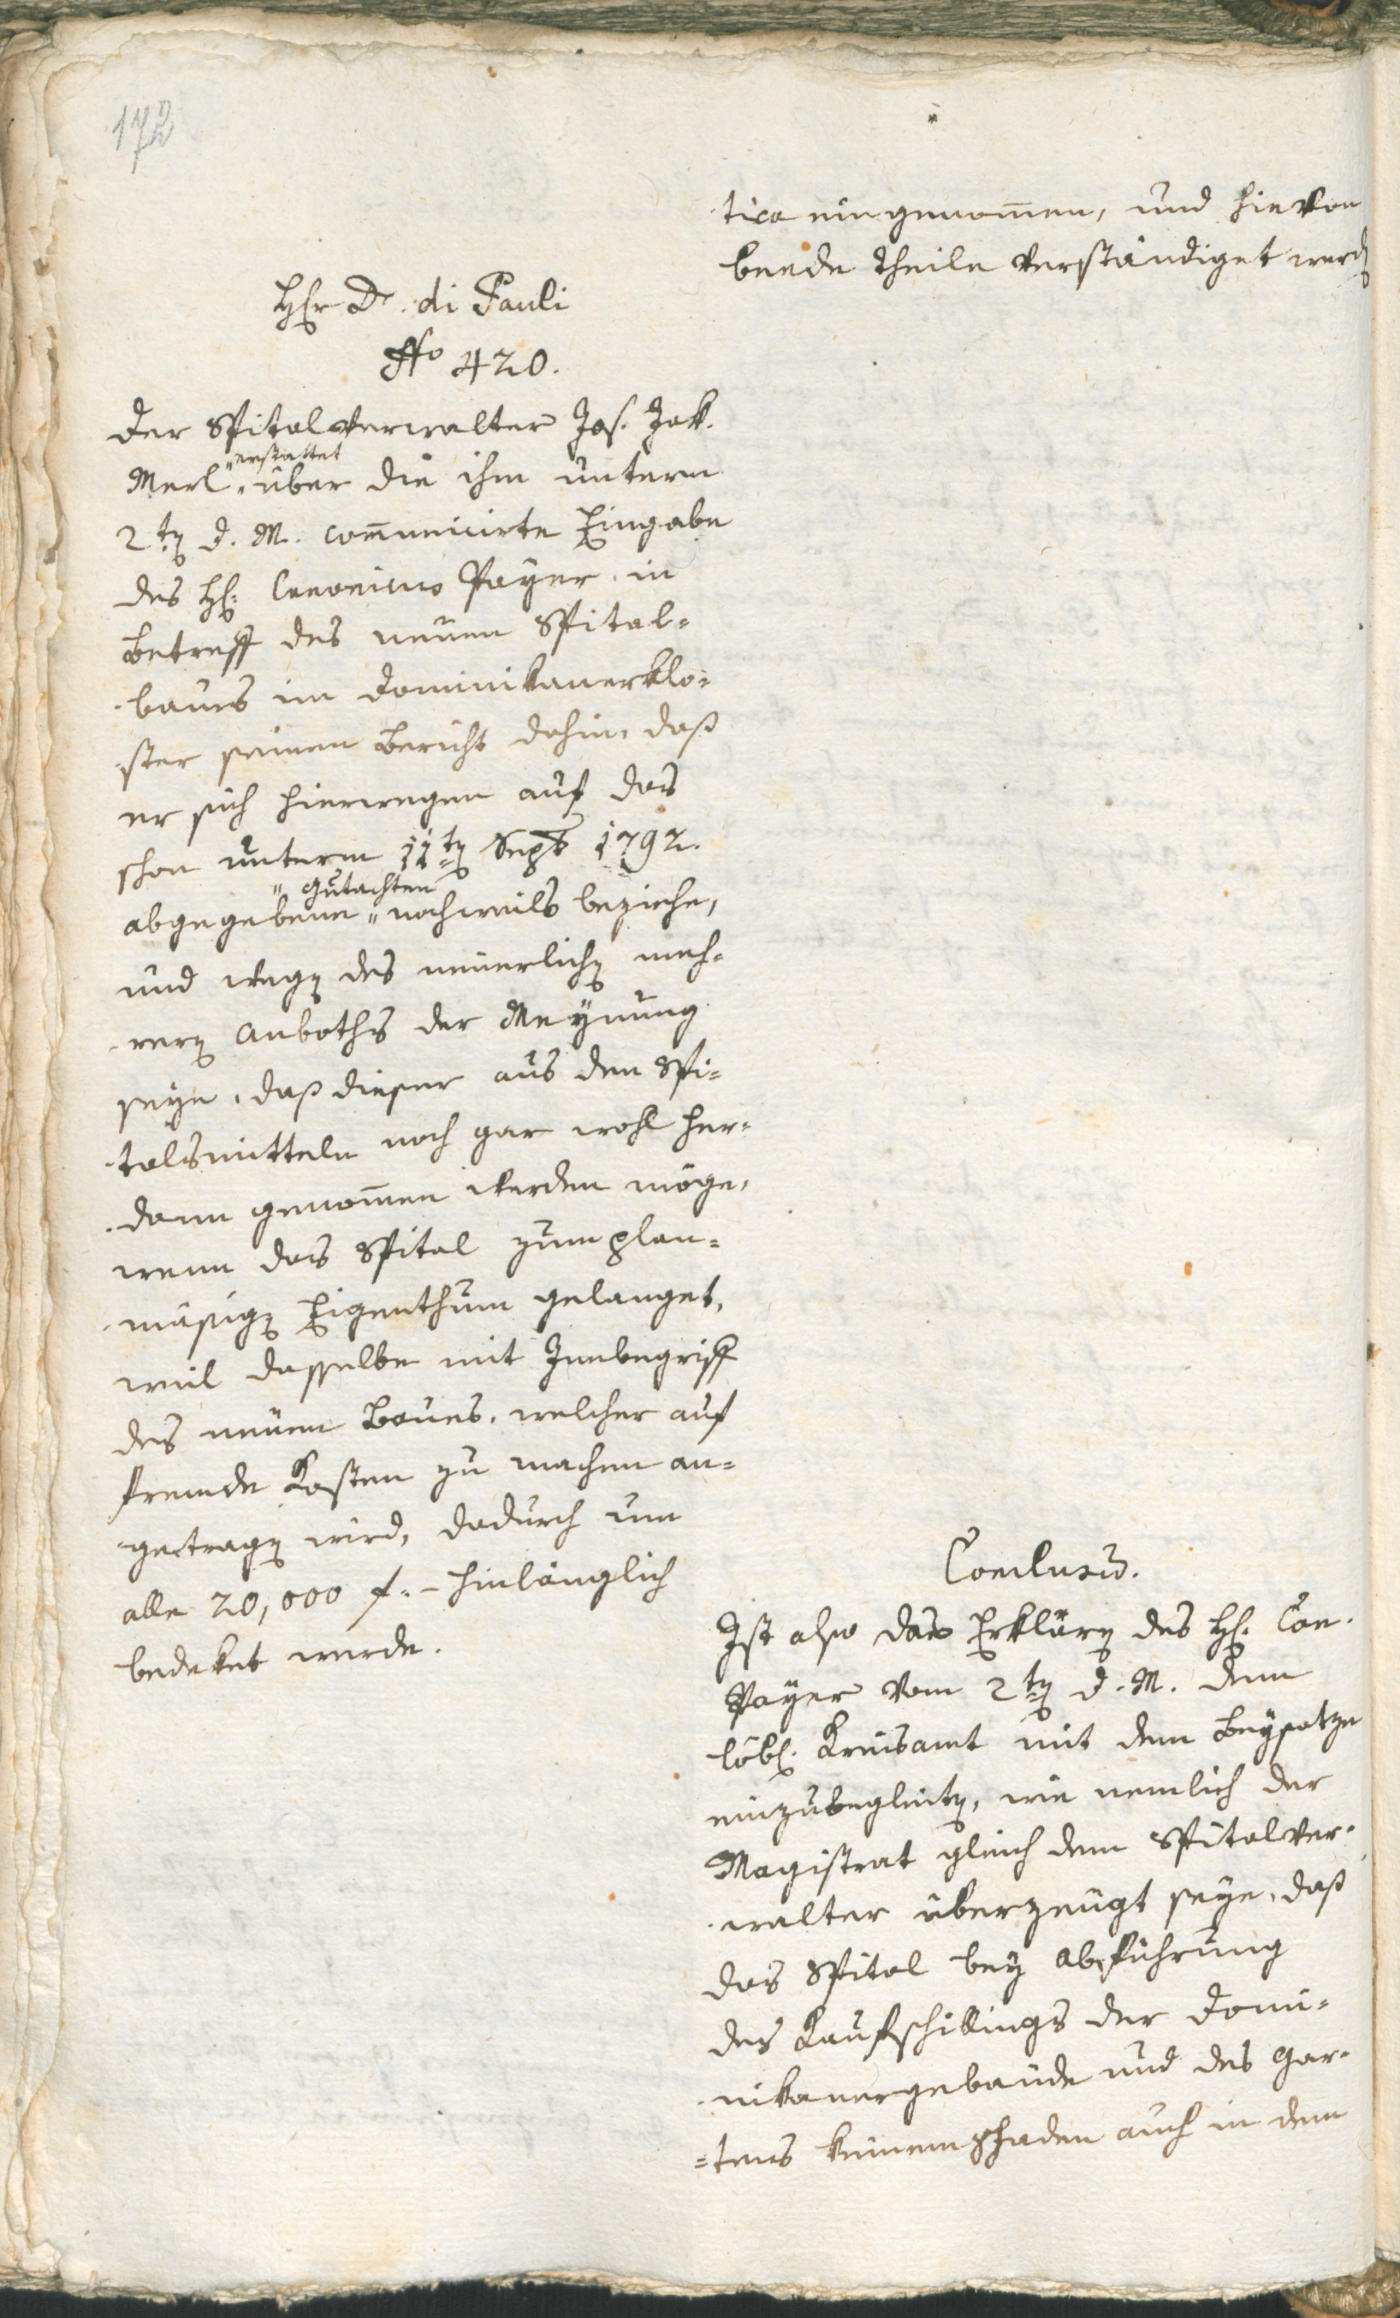 172
tica eingenom̄en, und hievon
beede Theile verständiget werdē
H&lt;err&gt; Dr. di Pauli
No 420.
Der Spitalverwalter Jos. Jak.
Merl "erstattet" über die ihm unterm
2ten d. M. com̄unicirte Eingabe
des H. Canonicus Payer in
Betreff des neuen Spital-
baues im Dominikanerklo-
ster seinen Bericht dahin, daß
er sich hierwegen auf das
schon unterm 11ten Septb 1792.
abgegebene "Gutachten" nochmals beziehe,
und wegen des neuerlichen meh-
reren Anboths der Meynung
seye, daß dieser aus den Spi-
talsmitteln noch gar wohl her-
dann genom̄en werden möge,
wenn das Spital zum plan-
mäsigen Eigenthum gelanget,
weil dasselbe mit Innbegriff
des neuen Baues, welcher auf
fremde Kosten zu machen an-
getragen wird, dadurch um
alle 20,000 f. - hinlänglich
bedeket werde.
Conclusum.
Ist also das Erklären des H. Can.
Payer vom 2ten d. M. dem
löbl. Kreisamt mit dem Beysatze
einzubegleiten, wie nemlich der
Magistrat gleich dem Spitalver-
walter überzeugt seye, daß
das Spital bey Abführung
des Kaufschillings der Domi-
nikanergebäude und des Gar-
tens keinem Schaden auch in dem